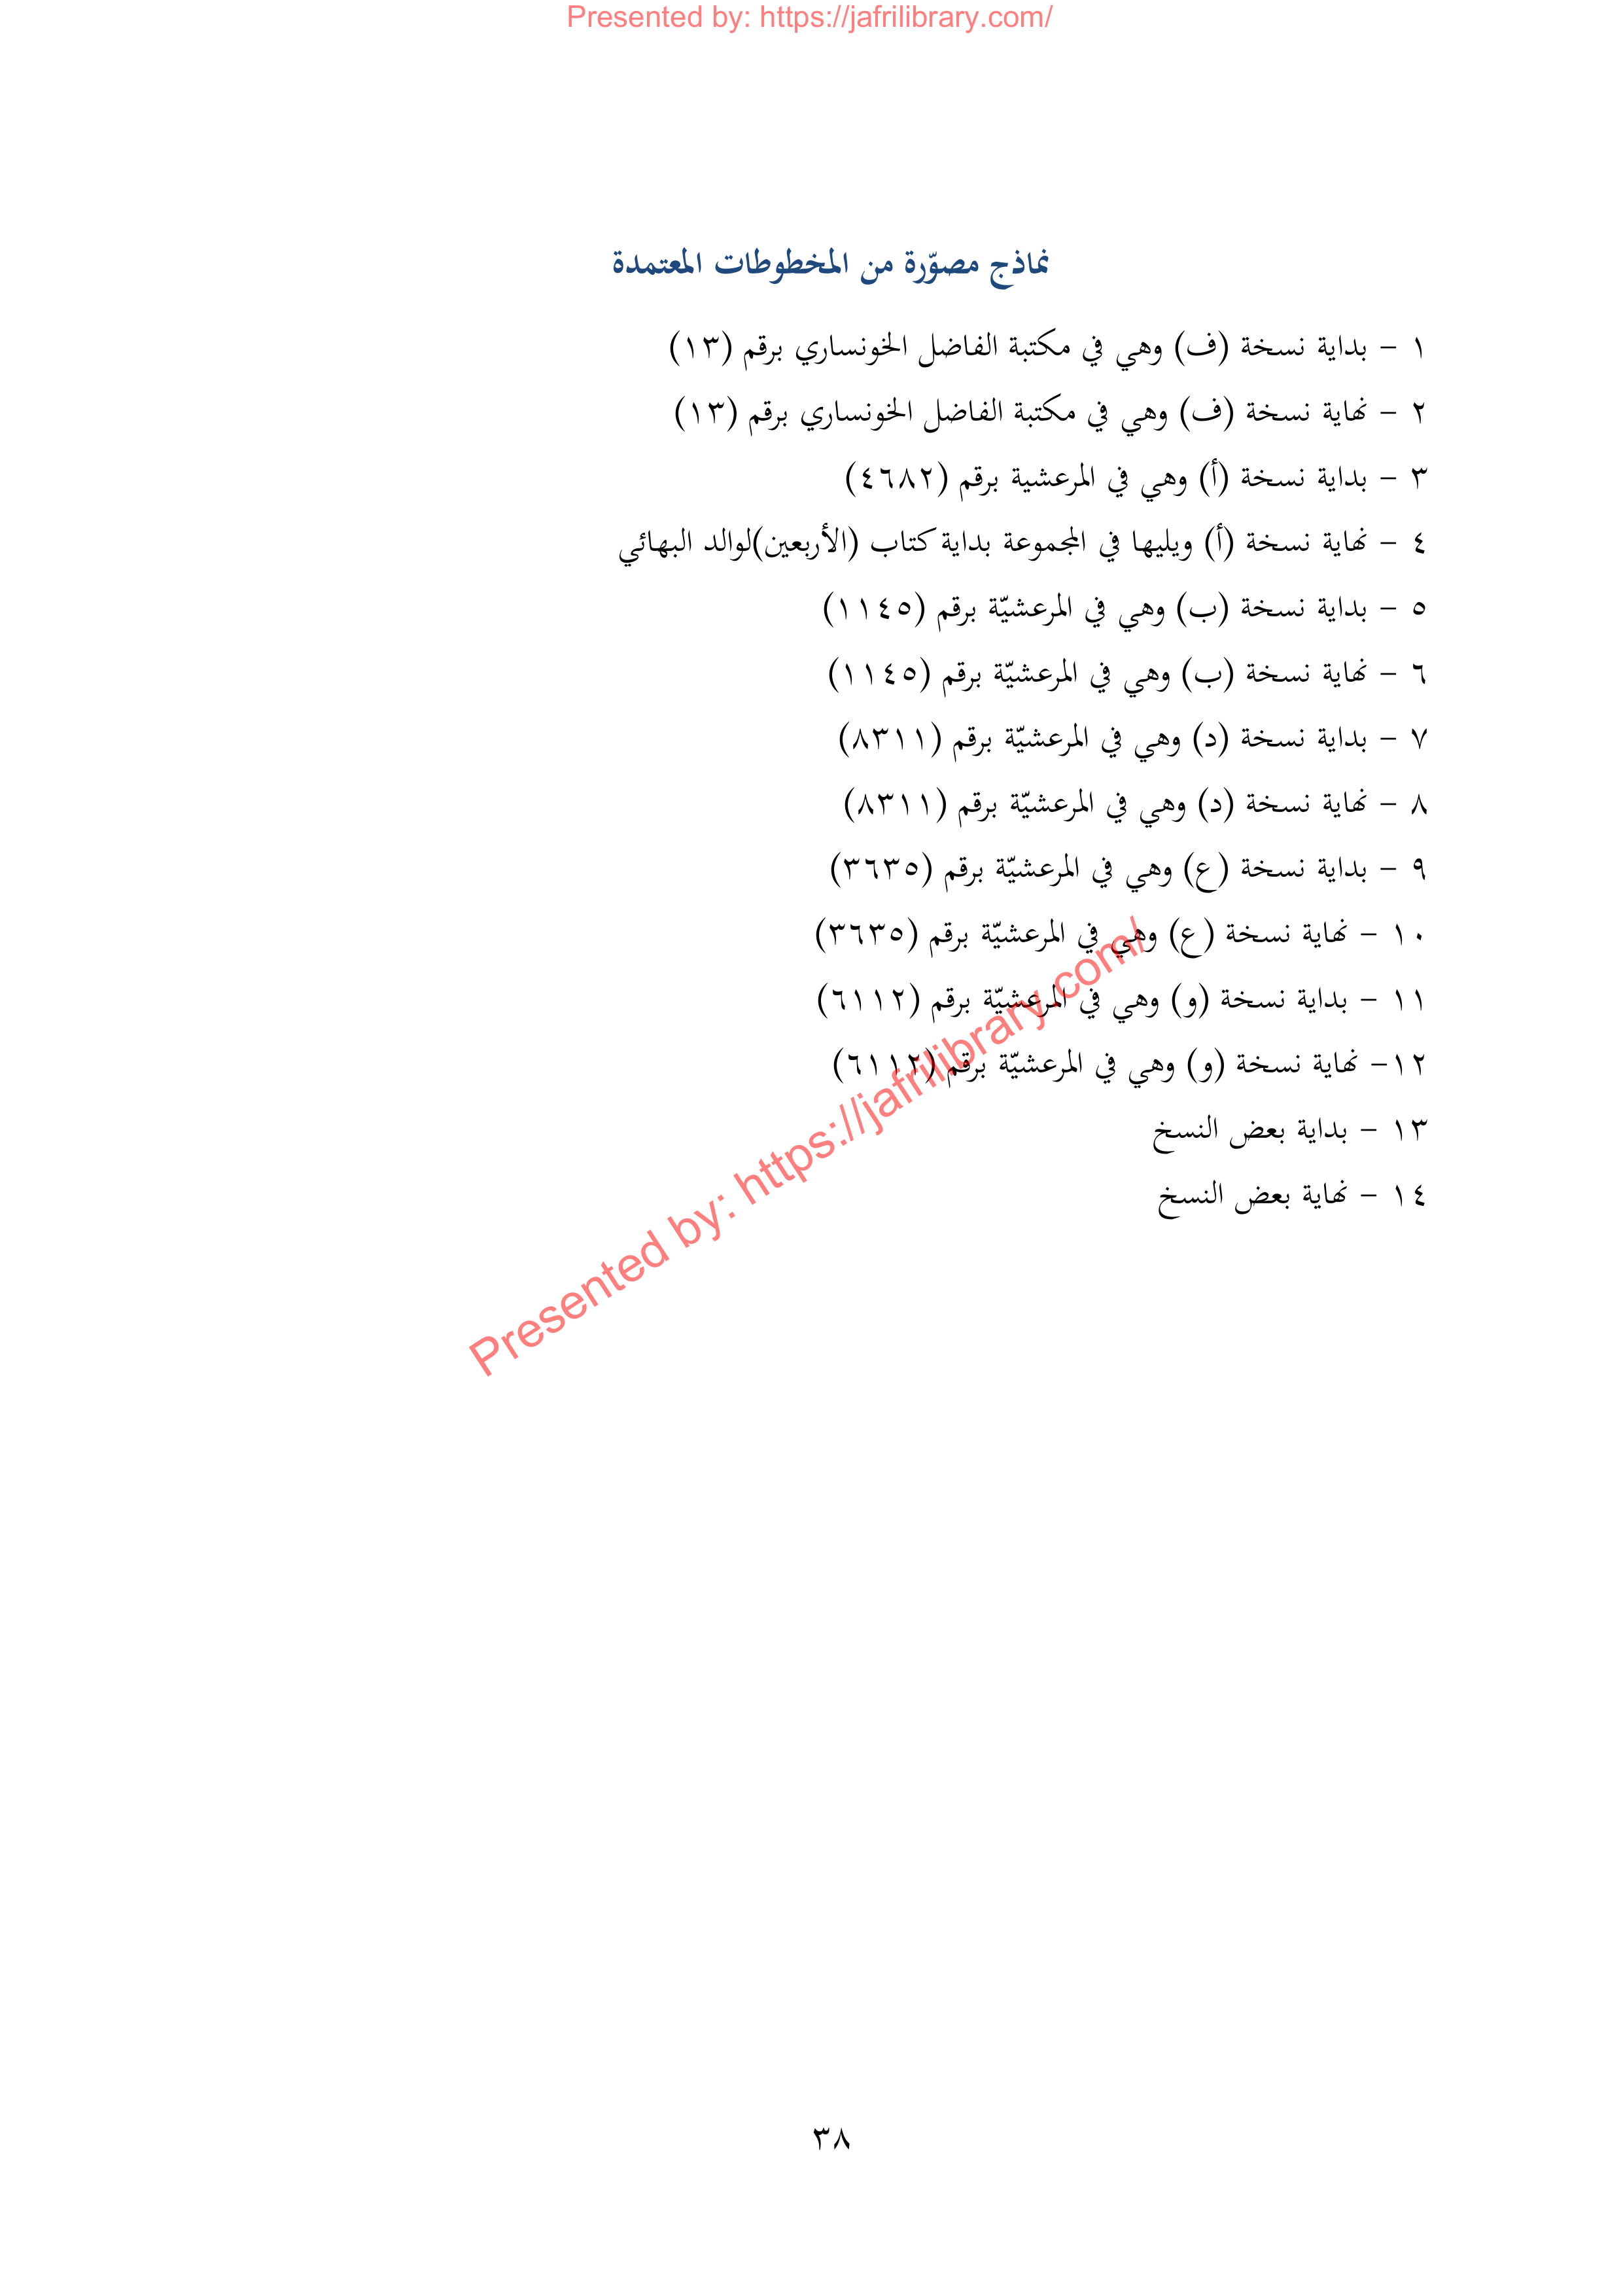 Presented by: https://jafrilibrary.com/
نماذج مصوّرة من المخطوطات المعتمدة
١ – بداية نسخة (ف) وهي في مكتبة الفاضل الخونساري برقم (١٣)
٢ – نهاية نسخة (ف) وهي في مكتبة الفاضل الخونساري برقم (١٣)
٣ – بداية نسخة (أ) وهي في المرعشية برقم (٤٦٨٢)
٤ – نهاية نسخة (أ) ويليها في المجموعة بداية كتاب (الأربعين)لوالد البهائي
٥ – بداية نسخة (ب) وهي في المرعشيّة برقم (١١٤٥)
٦ – نهاية نسخة (ب) وهي في المرعشيّة برقم (١١٤٥)
٧ – بداية نسخة (د) وهي في المرعشيّة برقم (٨٣١١)
٨ – نهاية نسخة (د) وهي في المرعشيّة برقم (٨٣١١)
٩ – بداية نسخة (ع) وهي في المرعشيّة برقم (٣٦٣٥)
١٠ – نهاية نسخة (ع) وهي في المرعشيّة برقم (٣٦٣٥)
١١ – بداية نسخة (و) وهي في المرعشيّة برقم (٦١١٢)
١٢– نهاية نسخة (و) وهي في المرعشيّة برقم (٦١١٢)
١٣ – بداية بعض النسخ
١٤ – نهاية بعض النسخ
Presented by: https://jafrilibrary.com/
٣٨